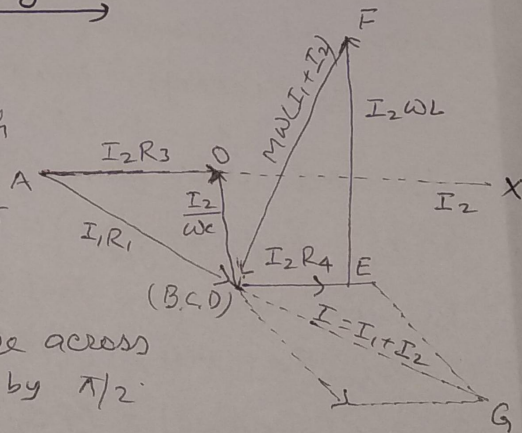 F
MW(I₁+I₂)
I₂WL
I₂R₃
A
O
X
I₂
I₂/WC
I₁R₁
I₂R₄
E
(B,C,D)
I=I₁+I₂
e across
by π/2.
G